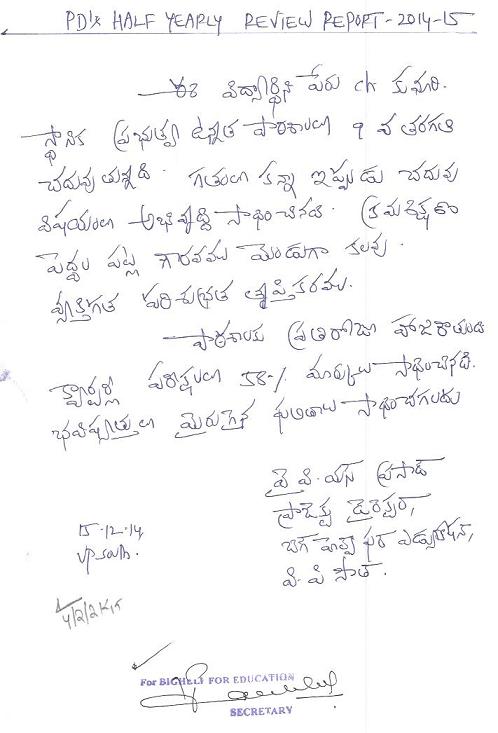 PD's HALF YEARLY REVIEW REPORT - 2014-15
ఈ విద్యార్థిని పేరు ch కుమారి.
స్థానిక ప్రభుత్వ ఉన్నత పాఠశాలలో 9 వ తరగతి
చదువుతున్నది. గతంలో కన్నా ఇప్పుడు చదువు
విషయంలో అభివృద్ధి సాధించినది. క్రమశిక్షణ
పెద్దల పట్ల గౌరవము మెండుగా కలవు.
వ్యక్తిగత పరిశుభ్రత తృప్తికరము.
పాఠశాలకు ప్రతిరోజూ హాజరౌతుంది
క్వార్టర్లీ పరీక్షలలో 58-% మార్కులు సాధించినది.
భవిష్యత్తులో మెరుగైన ఫలితాలు సాధించగలదు
వై.వి.యస్ ప్రసాద్
ప్రాజెక్టు డైరెక్టర్,
బిగ్ హెల్ప్ ఫర్ ఎడ్యుకేషన్,
వి.పి సౌత్.
15-12-14,
VP South.
4/2/2K15
For BIGHELP FOR EDUCATION
SECRETARY